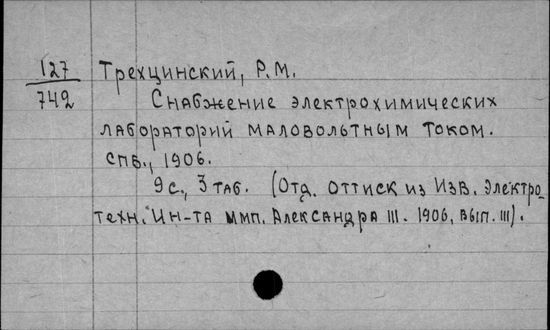 127 Трехцинский, Р.М.
742 Снабжение электрохимических
лабораторий маловольтным током.
СПБ., 1906.
9с., 3 таб. (Отд. оттиск из Изв. Электро-
техн. Ин-та имп. Александра III. 1906, вып. III).